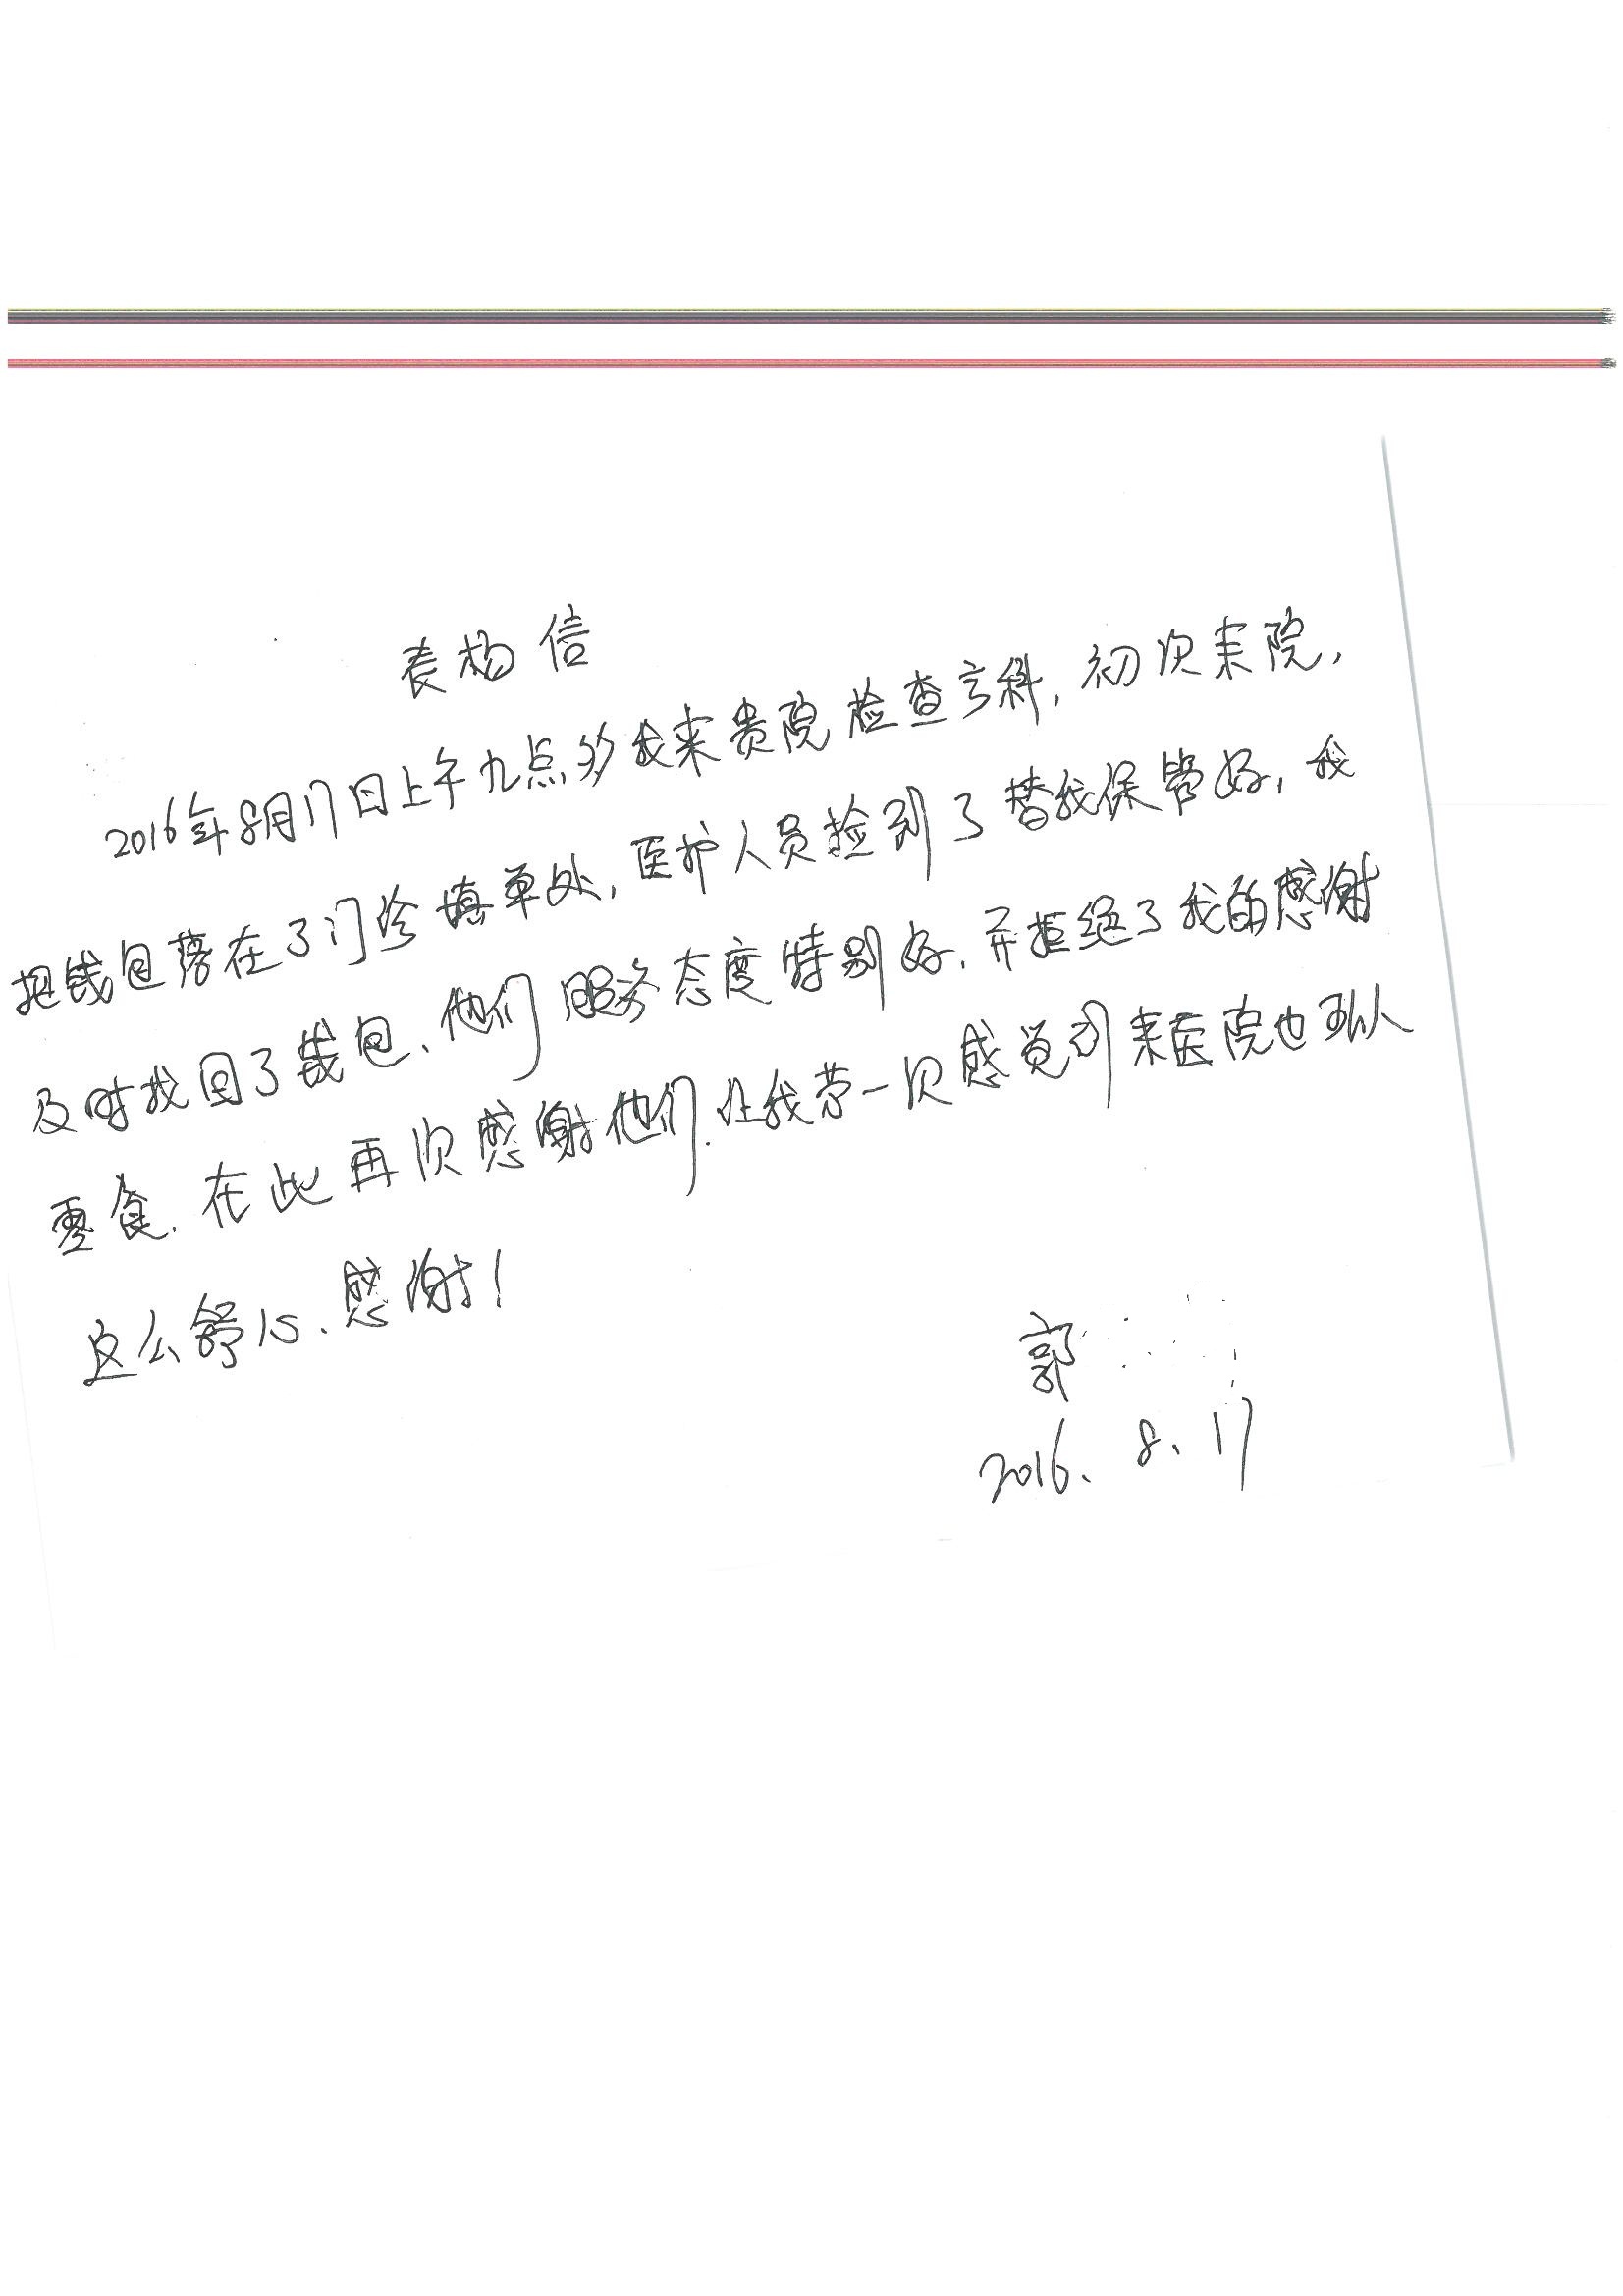 表扬信
2016年8月17日上午九点多我来贵院检查产科,初次来院,
把钱包落在了门诊填单处,医护人员捡到了替我保管好,我
及时找回了钱包、他们服务态度特别好、并拒绝了我的感谢
零食.在此再次感谢他们.让我第一次感觉到来医院也可以
这么舒心、感谢!
郭
2016.8.17